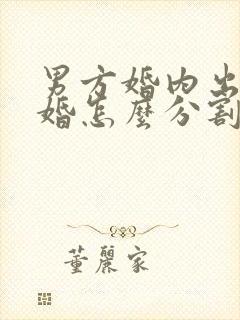 男方婚内出
婚怎麼分割
董麗家